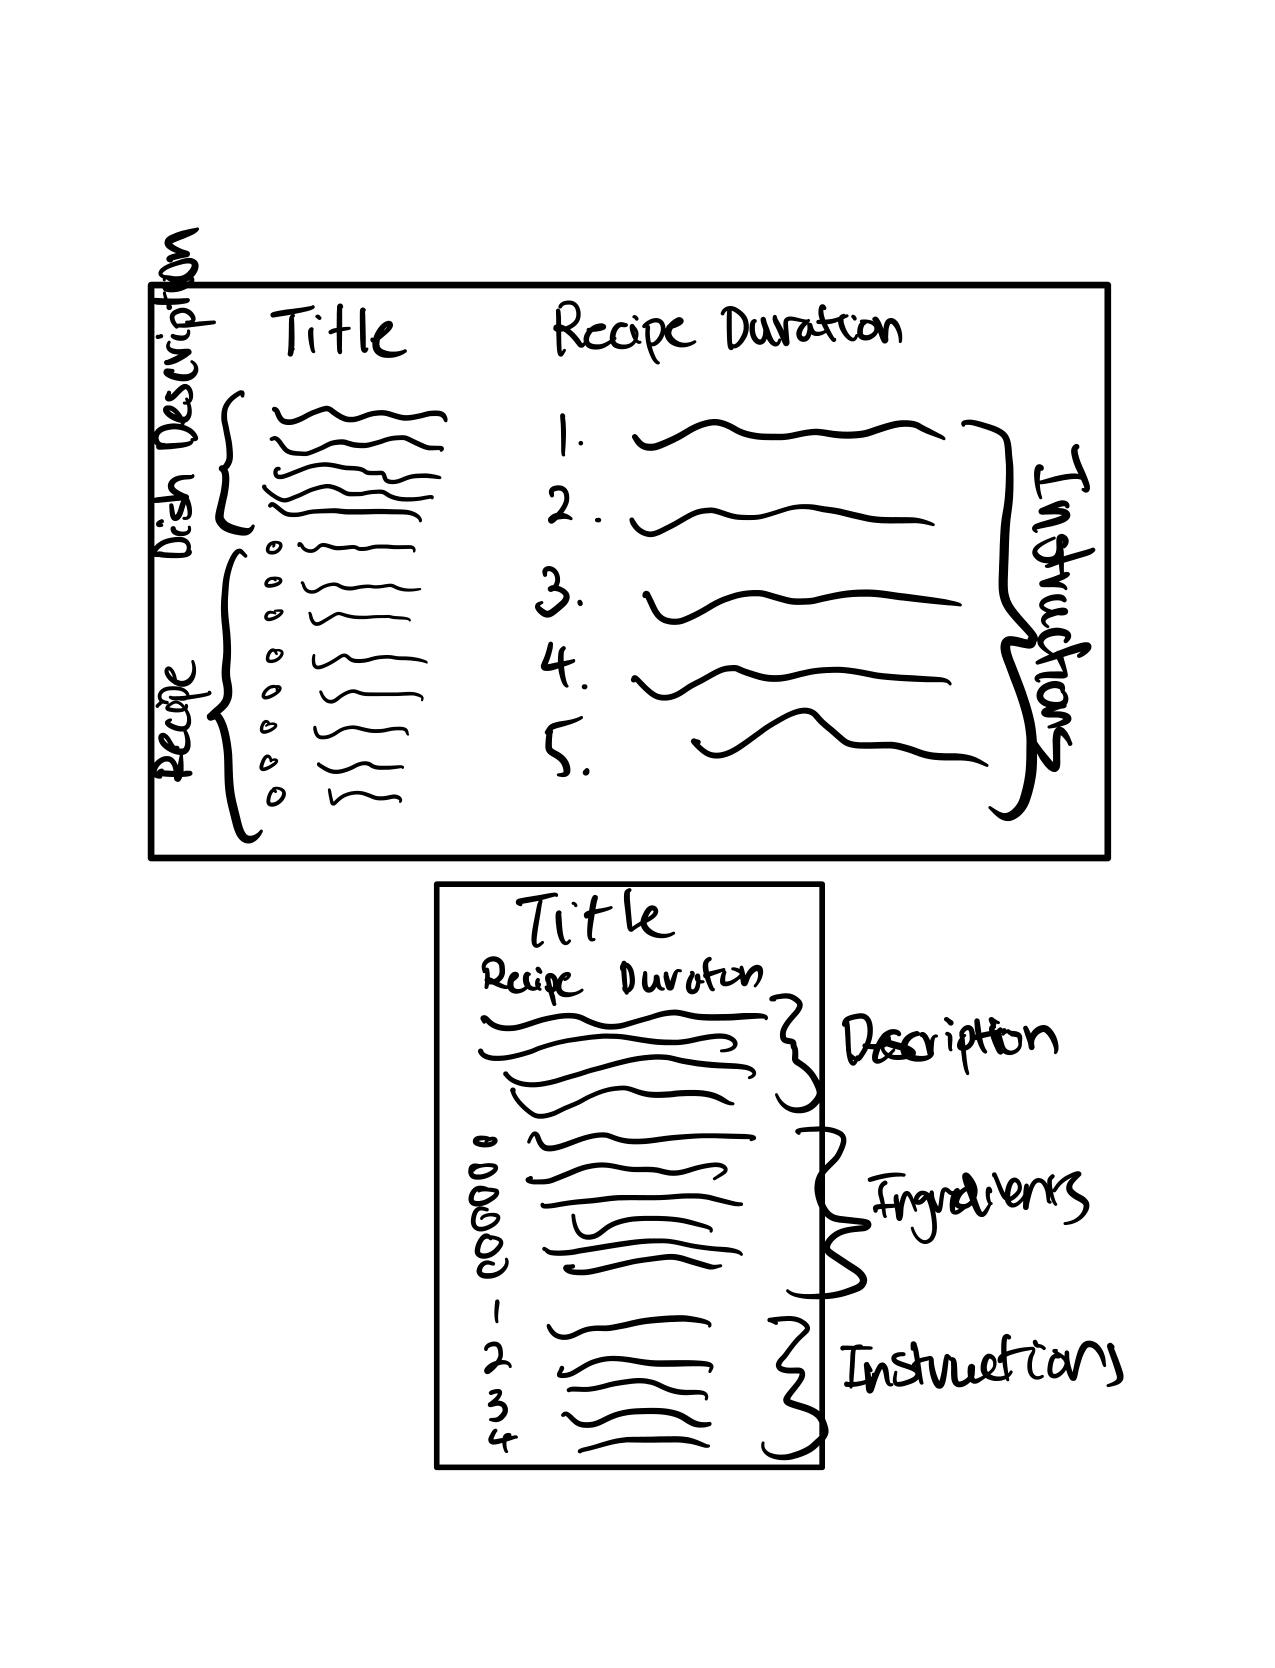 Dish Description
Title
Recipe Duration
1.
2.
3.
4.
5.
Recipe
Instructions
Title
Recipe Duration
Description
Ingredients
1
2
3
4
Instructions